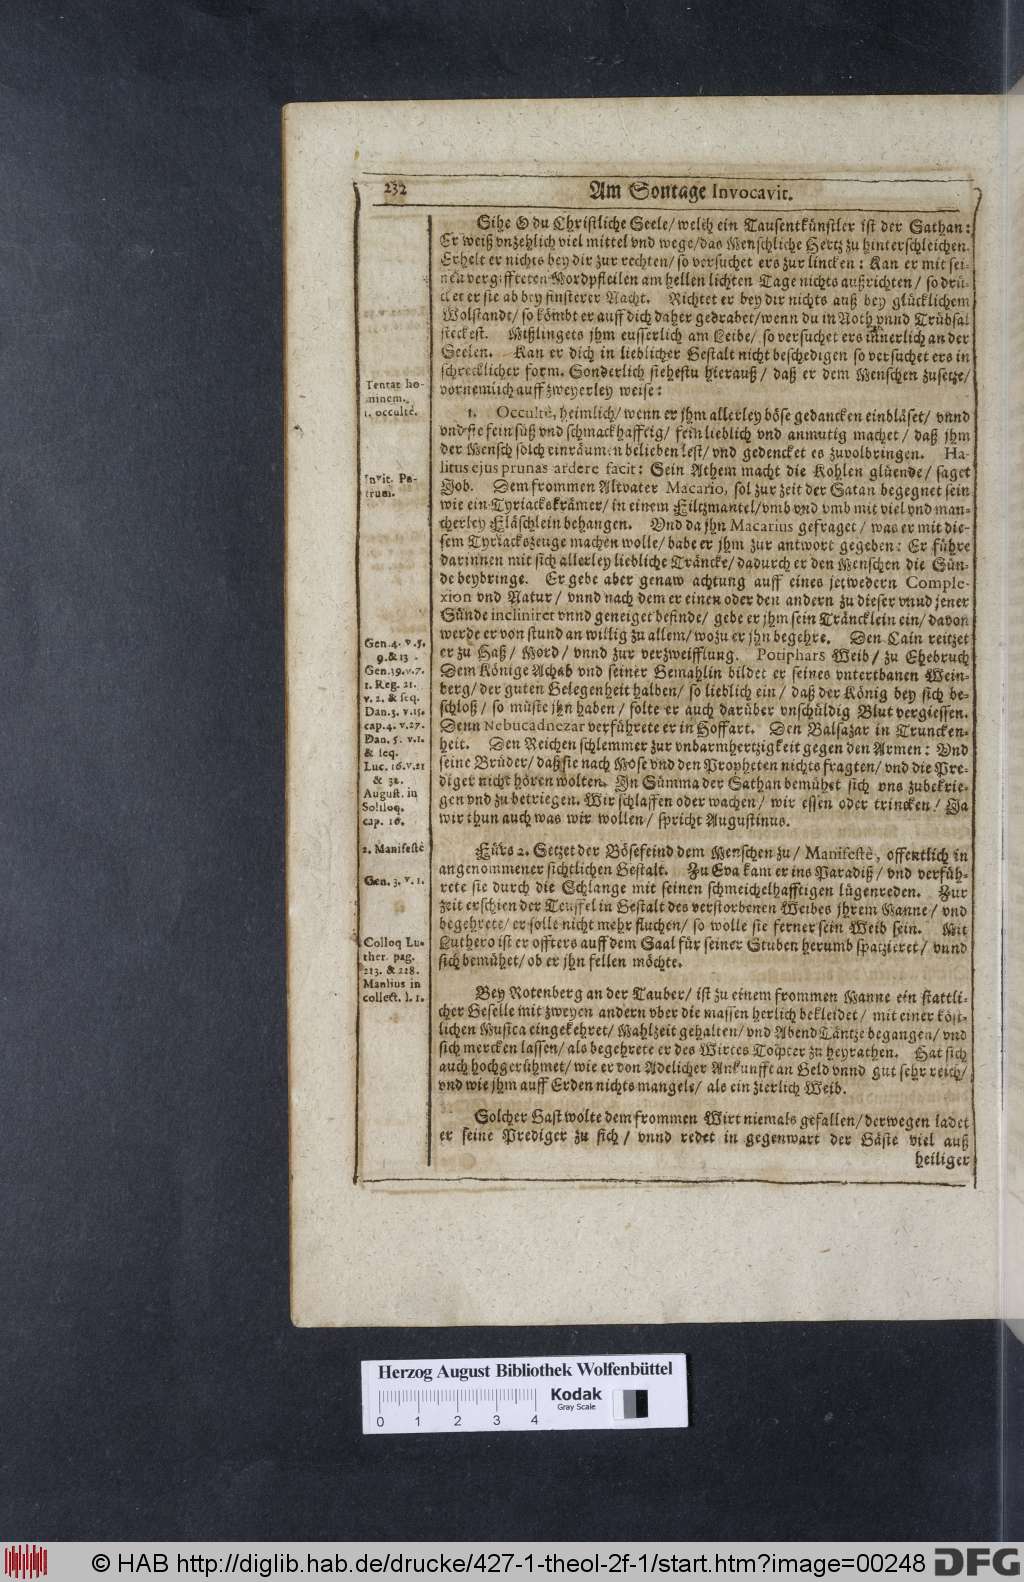 232
Am Sontage Invocavit.
Sihe O du Christliche Seele/ welch ein Tausentkünstler ist der Sathan:
Er weiß vnzehlich viel mittel vnd wege/ das Menschliche Hertz zu hinterschleichen.
Erhelt er nichts bey dir zur rechten/ so versuchet ers zur lincken: Kan er mit sei-
nen vergiffteten Mordpfeilen am hellen lichten Tage nichts außrichten/ so drü-
cket er sie ab bey finsterer Nacht. Richtet er bey dir nichts auß bey glücklichem
Wolstandt/ so kömbt er auff dich daher gedrabet/ wenn du in Noth vnnd Trübsal
steckest. Mißlingets jhm eusserlich am Leibe/ so versuchet ers innerlich an der
Seelen. Kan er dich in lieblicher Gestalt nicht beschedigen so versuchet ers in
schrecklicher form. Sonderlich siehestu hierauß/ daß er dem Menschen zusetze/
vornemlich auff zweyerley weise:
Tentat ho-
minem.
1. occultè.
1. Occultè, heimlich/ wenn er jhm allerley böse gedancken einbläset/ vnnd
vnd sie fein süß vnd schmackhafftig/ fein lieblich vnd anmutig machet/ daß jhm
der Mensch solch einräumen belieben lest/ vnd gedencket es zuvolbringen. Ha-
litus ejus prunas ardere facit: Sein Athem macht die Kohlen glüende/ saget
Job. Dem frommen Altvater Macario, sol zur zeit der Satan begegnet sein
wie ein Tyriackskrämer/ in einem Filtzmantel/ vmb vnd vmb mit viel vnd man-
cherley Fläschlein behangen. Vnd da jhn Macarius gefraget/ was er mit die-
sem Tyriackszeuge machen wolle/ habe er jhm zur antwort gegeben: Er führe
darinnen mit sich allerley liebliche Träncke/ dadurch er den Menschen die Sün-
de beybringe. Er gebe aber genaw achtung auff eines jetwedern Comple-
xion vnd Natur/ vnnd nach dem er einen oder den andern zu dieser vnnd jener
Sünde incliniret vnnd geneiget befinde/ gebe er jhm sein Träncklein ein/ davon
werde er von stund an willig zu allem/ wozu er jhn begehre. Den Cain reitzet
er zu Haß/ Mord/ vnnd zur verzweifflung. Potiphars Weib/ zu Ehebruch
Dem Könige Achab vnd seiner Gemahlin bildet er seines vnterthanen Wein-
berg/ der guten Gelegenheit halben/ so lieblich ein/ daß der König bey sich be-
schloß/ so müste jhn haben/ solte er auch darüber vnschüldig Blut vergiessen.
Denn Nebucadnezar verführete er in Hoffart. Den Balsazar in Truncken-
heit. Den Reichen schlemmer zur vnbarmhertzigkeit gegen den Armen: Vnd
seine Brüder/ daß sie nach Mose vnd den Propheten nichts fragten/ vnd die Pre-
diger nicht hören wolten. In Summa der Sathan bemühet sich vns zubekrie-
gen vnd zu betriegen. Wir schlaffen oder wachen/ wir essen oder trincken/ Ja
wir thun auch was wir wollen/ spricht Augustinus.
Invit. Pa-
trum.
Gen. 4. v. 5.
9. & 13
Gen. 39. v. 7.
1. Reg. 21.
v. 2. & seq.
Dan. 3. v. 15.
cap. 4. v. 27.
Dan. 5. v. 1.
& seq.
Luc. 16. v. 21
& 31.
August. in
Soliloq.
cap. 16.
2. Manifestè
Fürs 2. Setzet der Bösefeind dem Menschen zu/ Manifestè, offentlich in
angenommener sichtlichen Gestalt. Zu Eva kam er ins Paradiß/ vnd verfüh-
rete sie durch die Schlange mit seinen schmeichelhafftigen lügenreden. Zur
zeit erschien der Teuffel in Gestalt des verstorbenen Weibes jhrem Manne/ vnd
begehrete/ er solle nicht mehr fluchen/ so wolle sie ferner sein Weib sein. Mit
Luthero ist er offters auff dem Saal für seiner Stuben herumb spatzieret/ vnnd
sich bemühet/ ob er jhn fellen möchte.
Gen. 3. v. 1.
Colloq Lu-
ther. pag.
213. & 228.
Manlius in
collect. l. 1.
Bey Rotenberg an der Tauber/ ist zu einem frommen Manne ein stattli-
cher Geselle mit zweyen andern vber die massen herlich bekleidet/ mit einer köst-
lichen Musica eingekehret/ Mahlzeit gehalten/ vnd Abend Täntze begangen/ vnd
sich mercken lassen/ als begehrete er des Wirtes Tochter zu heyrathen. Hat sich
auch hochgerühmet/ wie er von Adelicher Ankunfft an Geld vnnd gut sehr reich/
vnd wie jhm auff Erden nichts mangele/ als ein zierlich Weib.
Solcher Gast wolte dem frommen Wirt niemals gefallen/ derwegen ladet
er seine Prediger zu sich/ vnnd redet in gegenwart der Gäste viel auß
heiliger
Herzog August Bibliothek Wolfenbüttel
Kodak
Gray Scale
0 1 2 3 4
© HAB http://diglib.hab.de/drucke/427-1-theol-2f-1/start.htm?image=00248
DFG